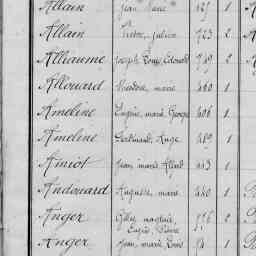 Allain Jean Marie 425 1
Allain Victor, Julien 723 2
Alleaume Joseph, Louis, Edouard 749 2
Allouard Théodore, marie 460 1
Ameline Eugène, marie, George 406 1
Ameline Ferdinand, Ange 1
Amiot Jean, marie 443 1
Andouard Auguste, marie 440 1
Anger Gilles
Eugène, Pierre 2
Anger Jean, marie, Louis 1